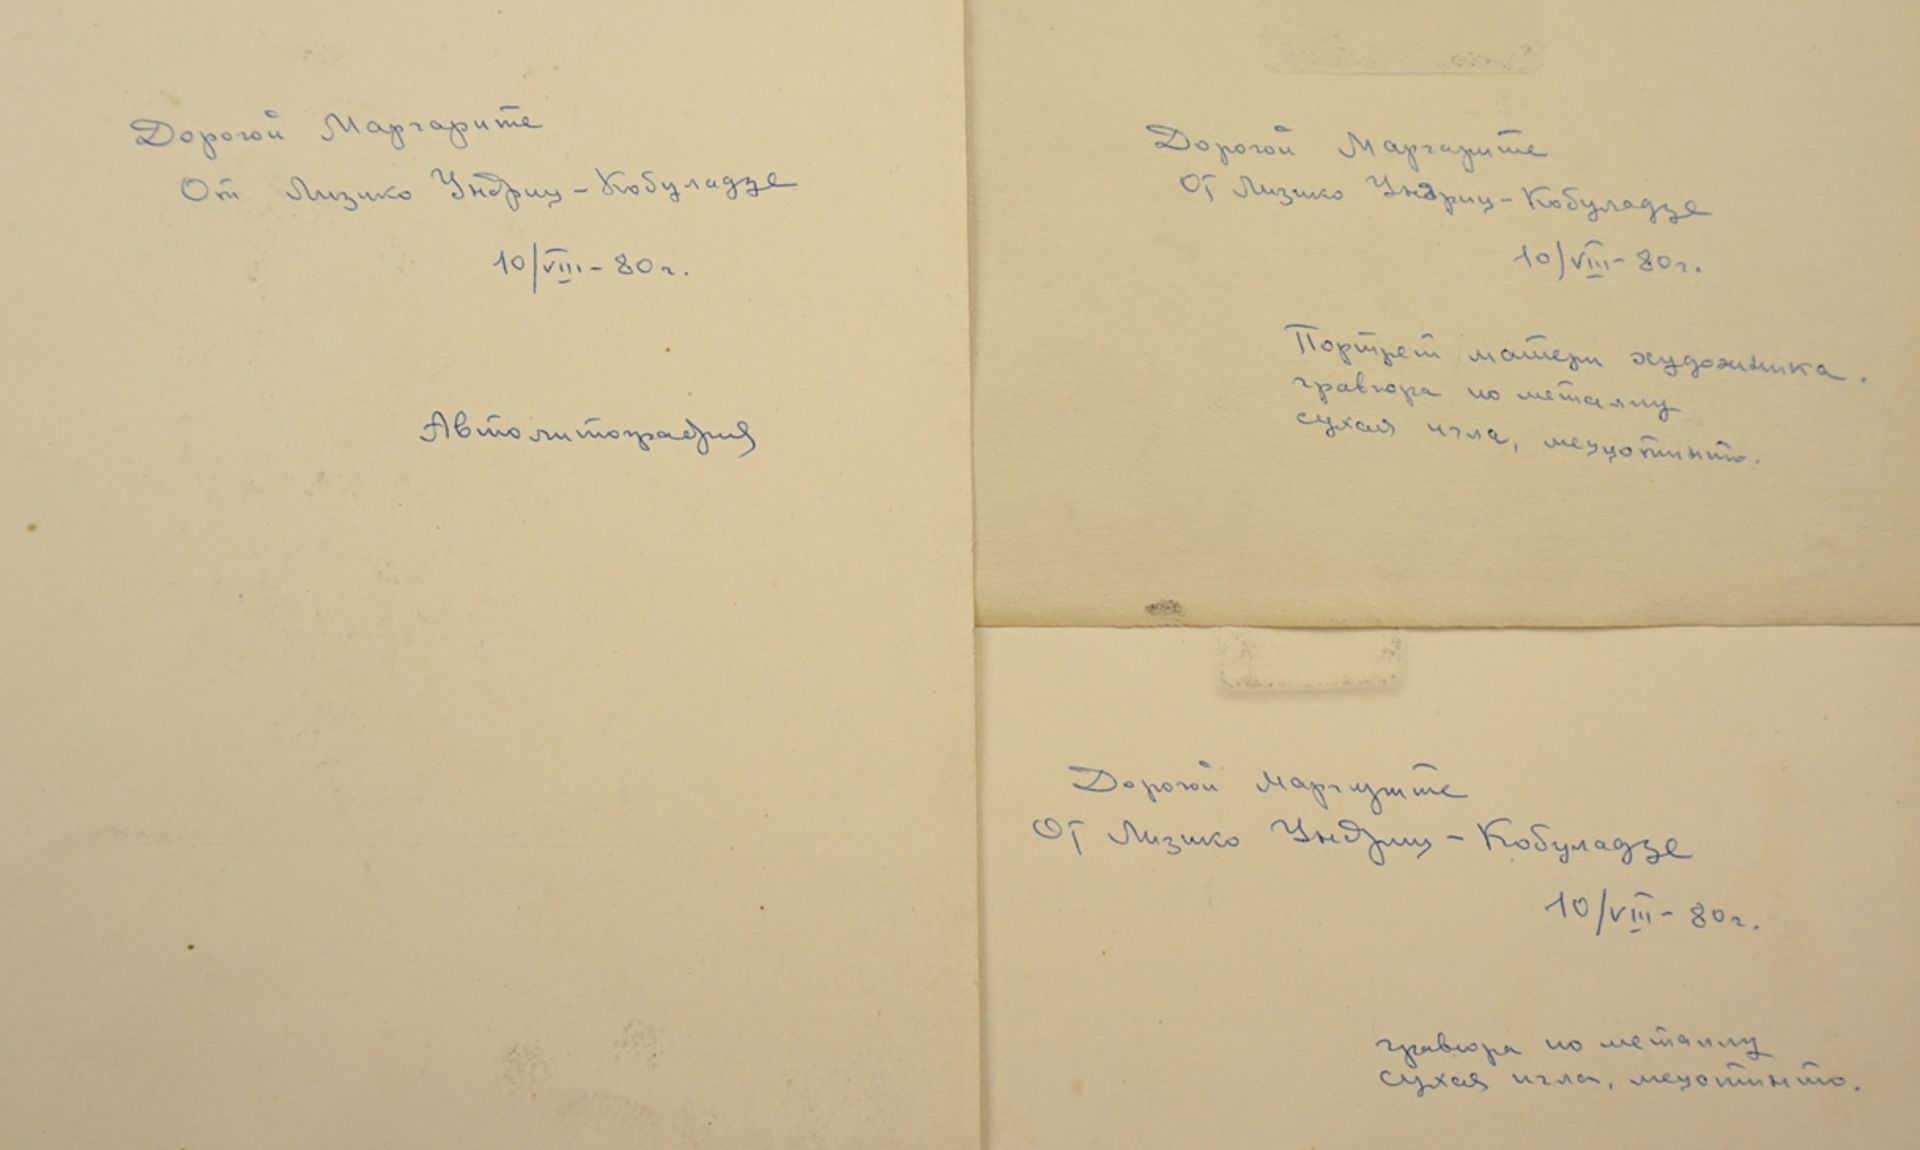 Дорогой Маргарите
От Лизико Ундриц-Кобуладзе
10/VIII-80г.
Автолитография
Дорогой Маргарите
От Лизико Ундриц-Кобуладзе
10/VIII-80г.
Портрет матери художника.
гравюра по металлу
сухая игла, меццотинто.
Дорогой Маргарите
От Лизико Ундриц-Кобуладзе
10/VIII-80г.
гравюра по металлу
сухая игла, мецотинто.